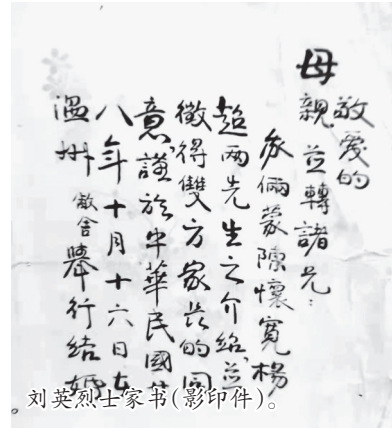 敬爱的
母親並轉諸兄：
我倆蒙陳懷寬楊
超两先生之介紹並
徵得雙方家長的同
意謹於中華民國廿
八年十月十六日在
溫州敝舍舉行结婚
刘英烈士家书(影印件)。